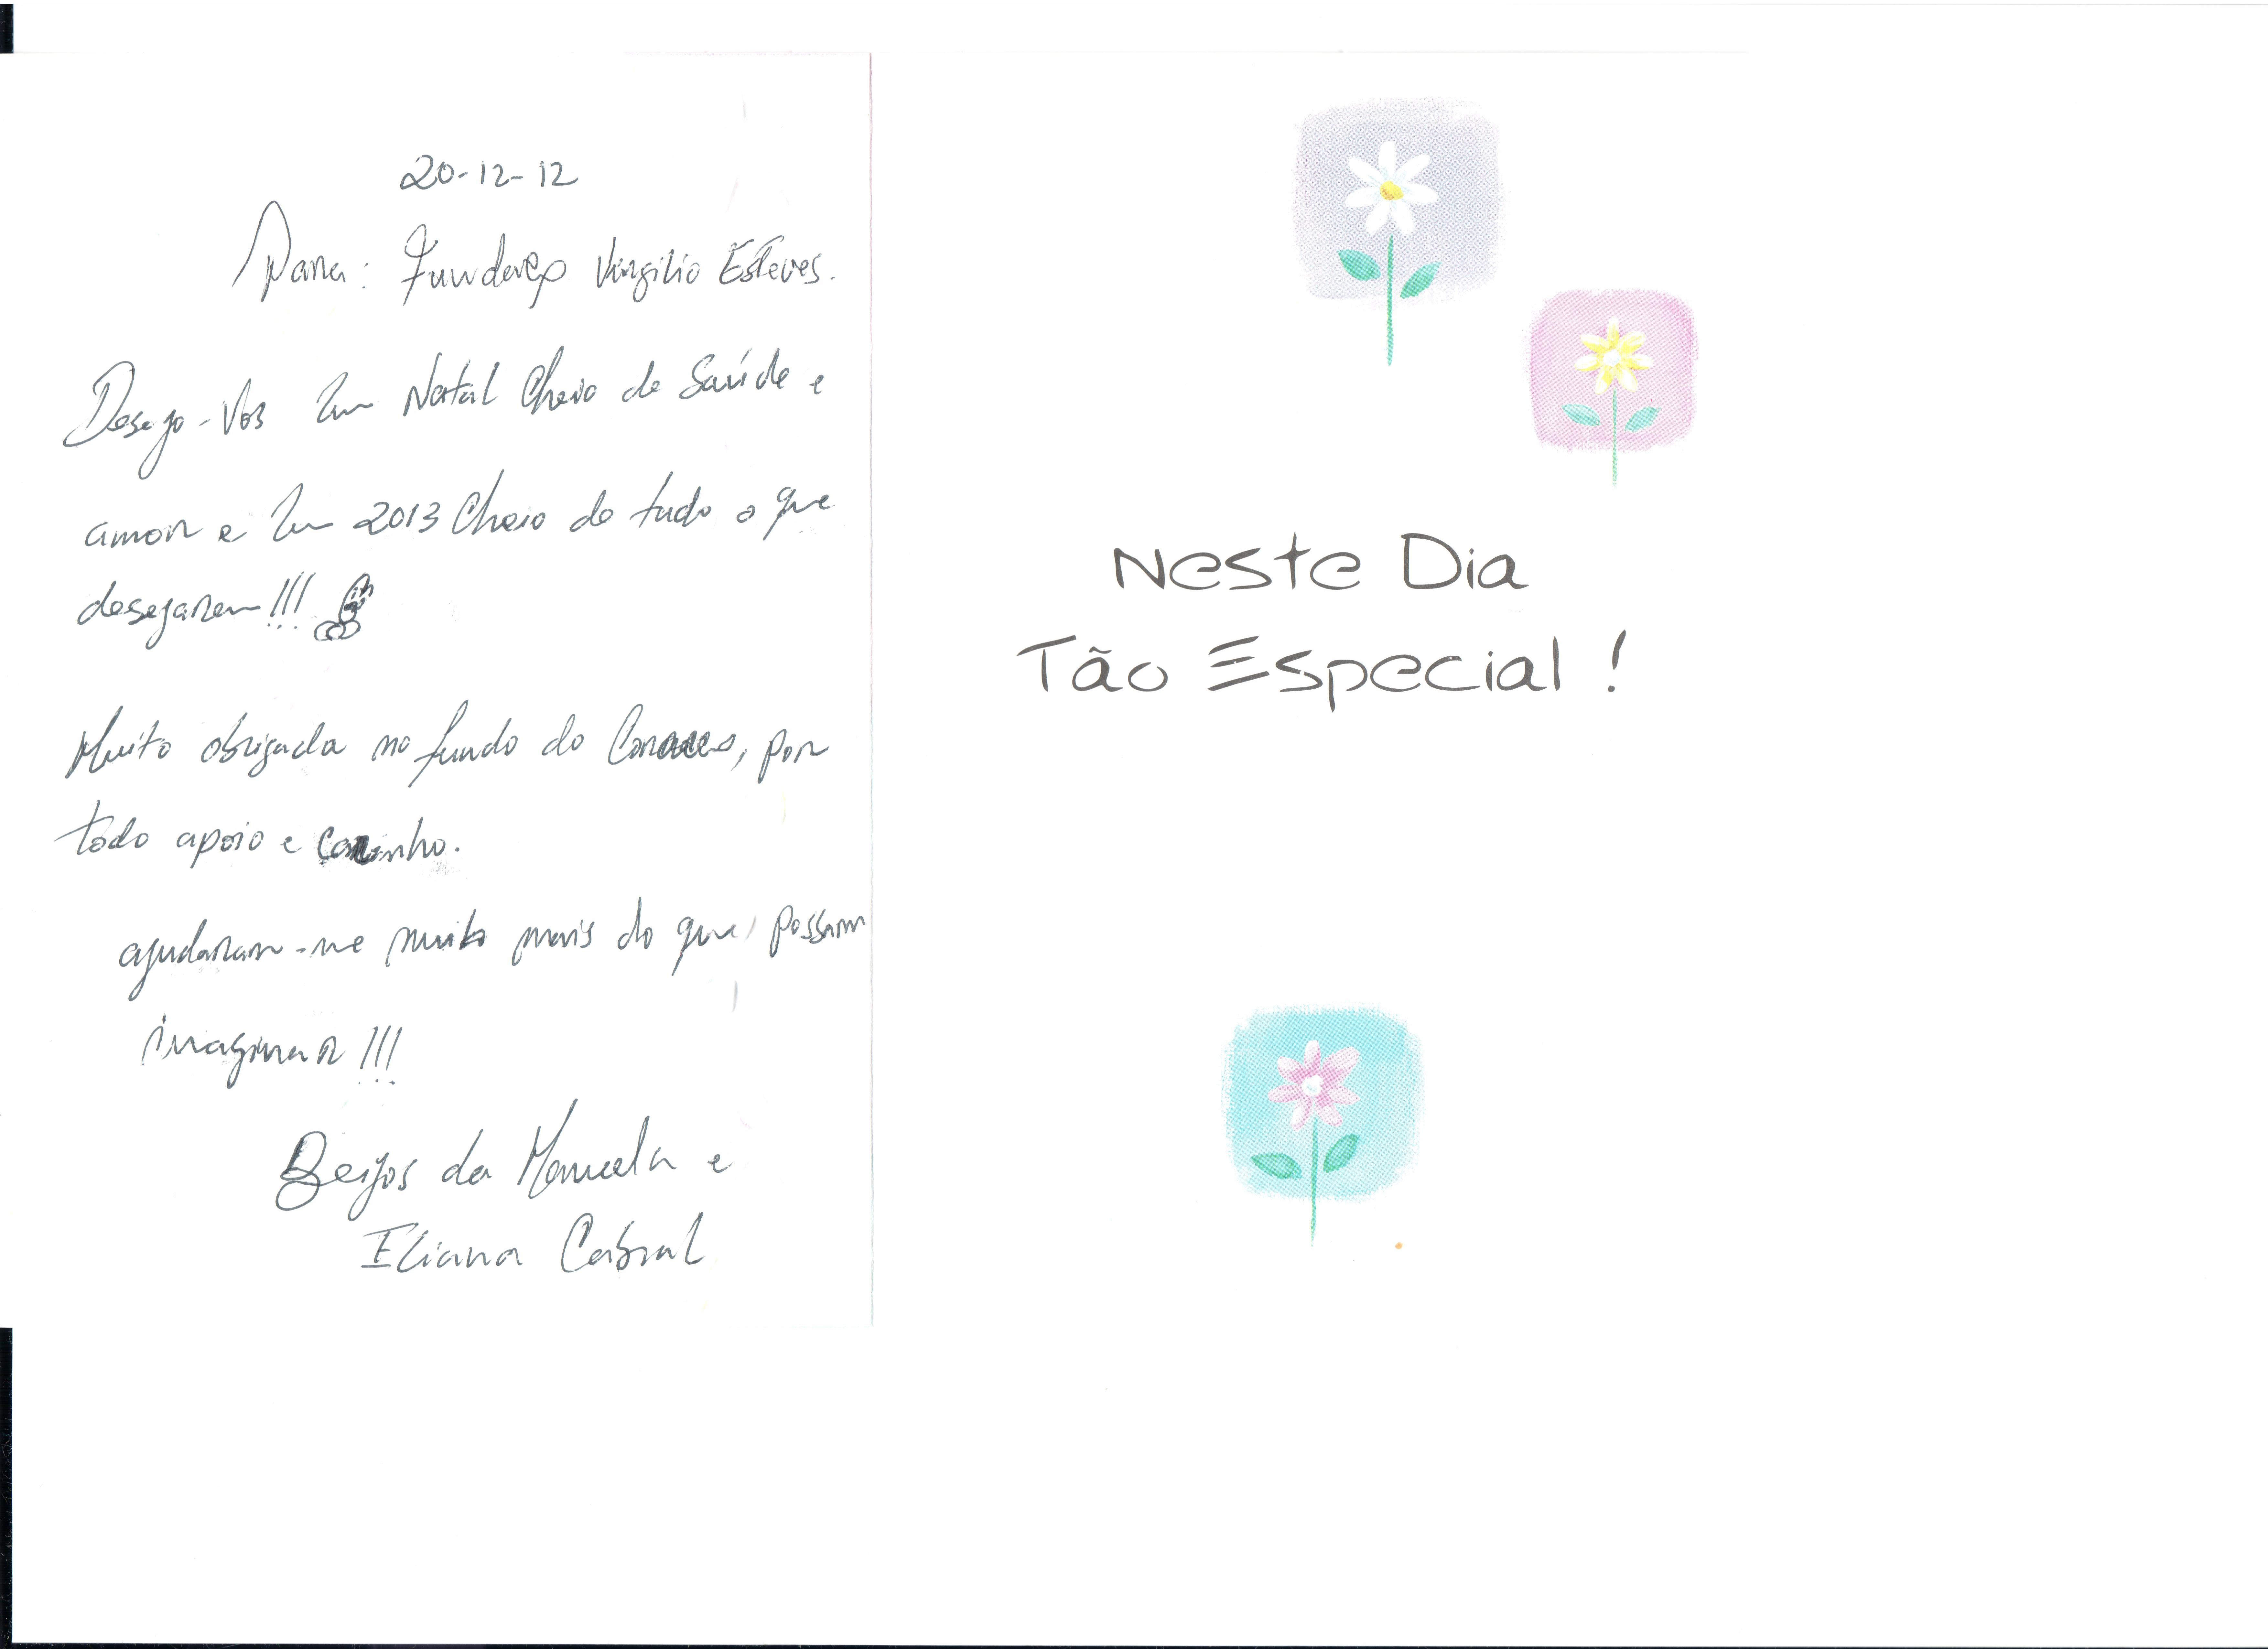 20-12-12
Para: Fundação Virgilio Esteves.
Desejo-Vos Um Natal Cheio de Saúde e
amor e Um 2013 Cheio de tudo o que
desejarem!!!
Muito obrigada no fundo do Coração, por
todo apoio e Carinho.
ajudaram-me muito mais do que possam
imaginar!!!
Beijos da Manuela e
Eliana Cabral
Neste Dia
Tão Especial !